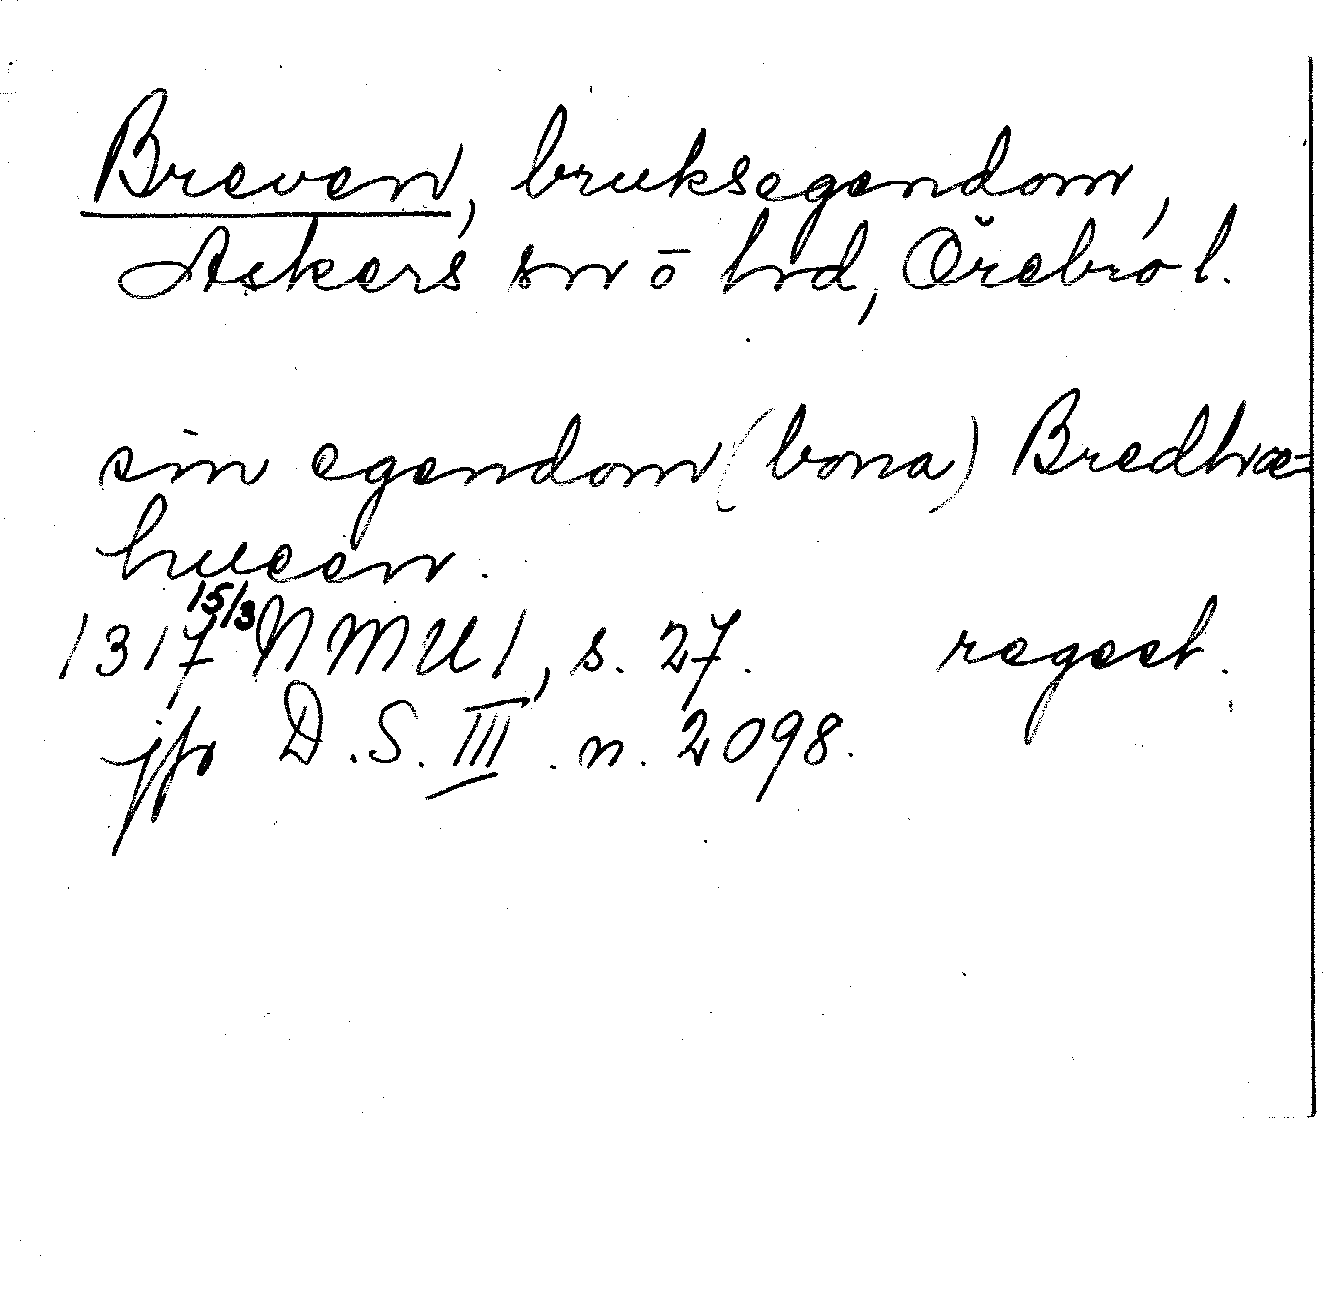 Breven, bruksegendom,
Askers sn o hd, Örebro l.
sin egendom (bona) Bredhæ=
hueen.
1317 15/3 NMU 1, s. 27. regest.
jfr D.S. III. n. 2098.